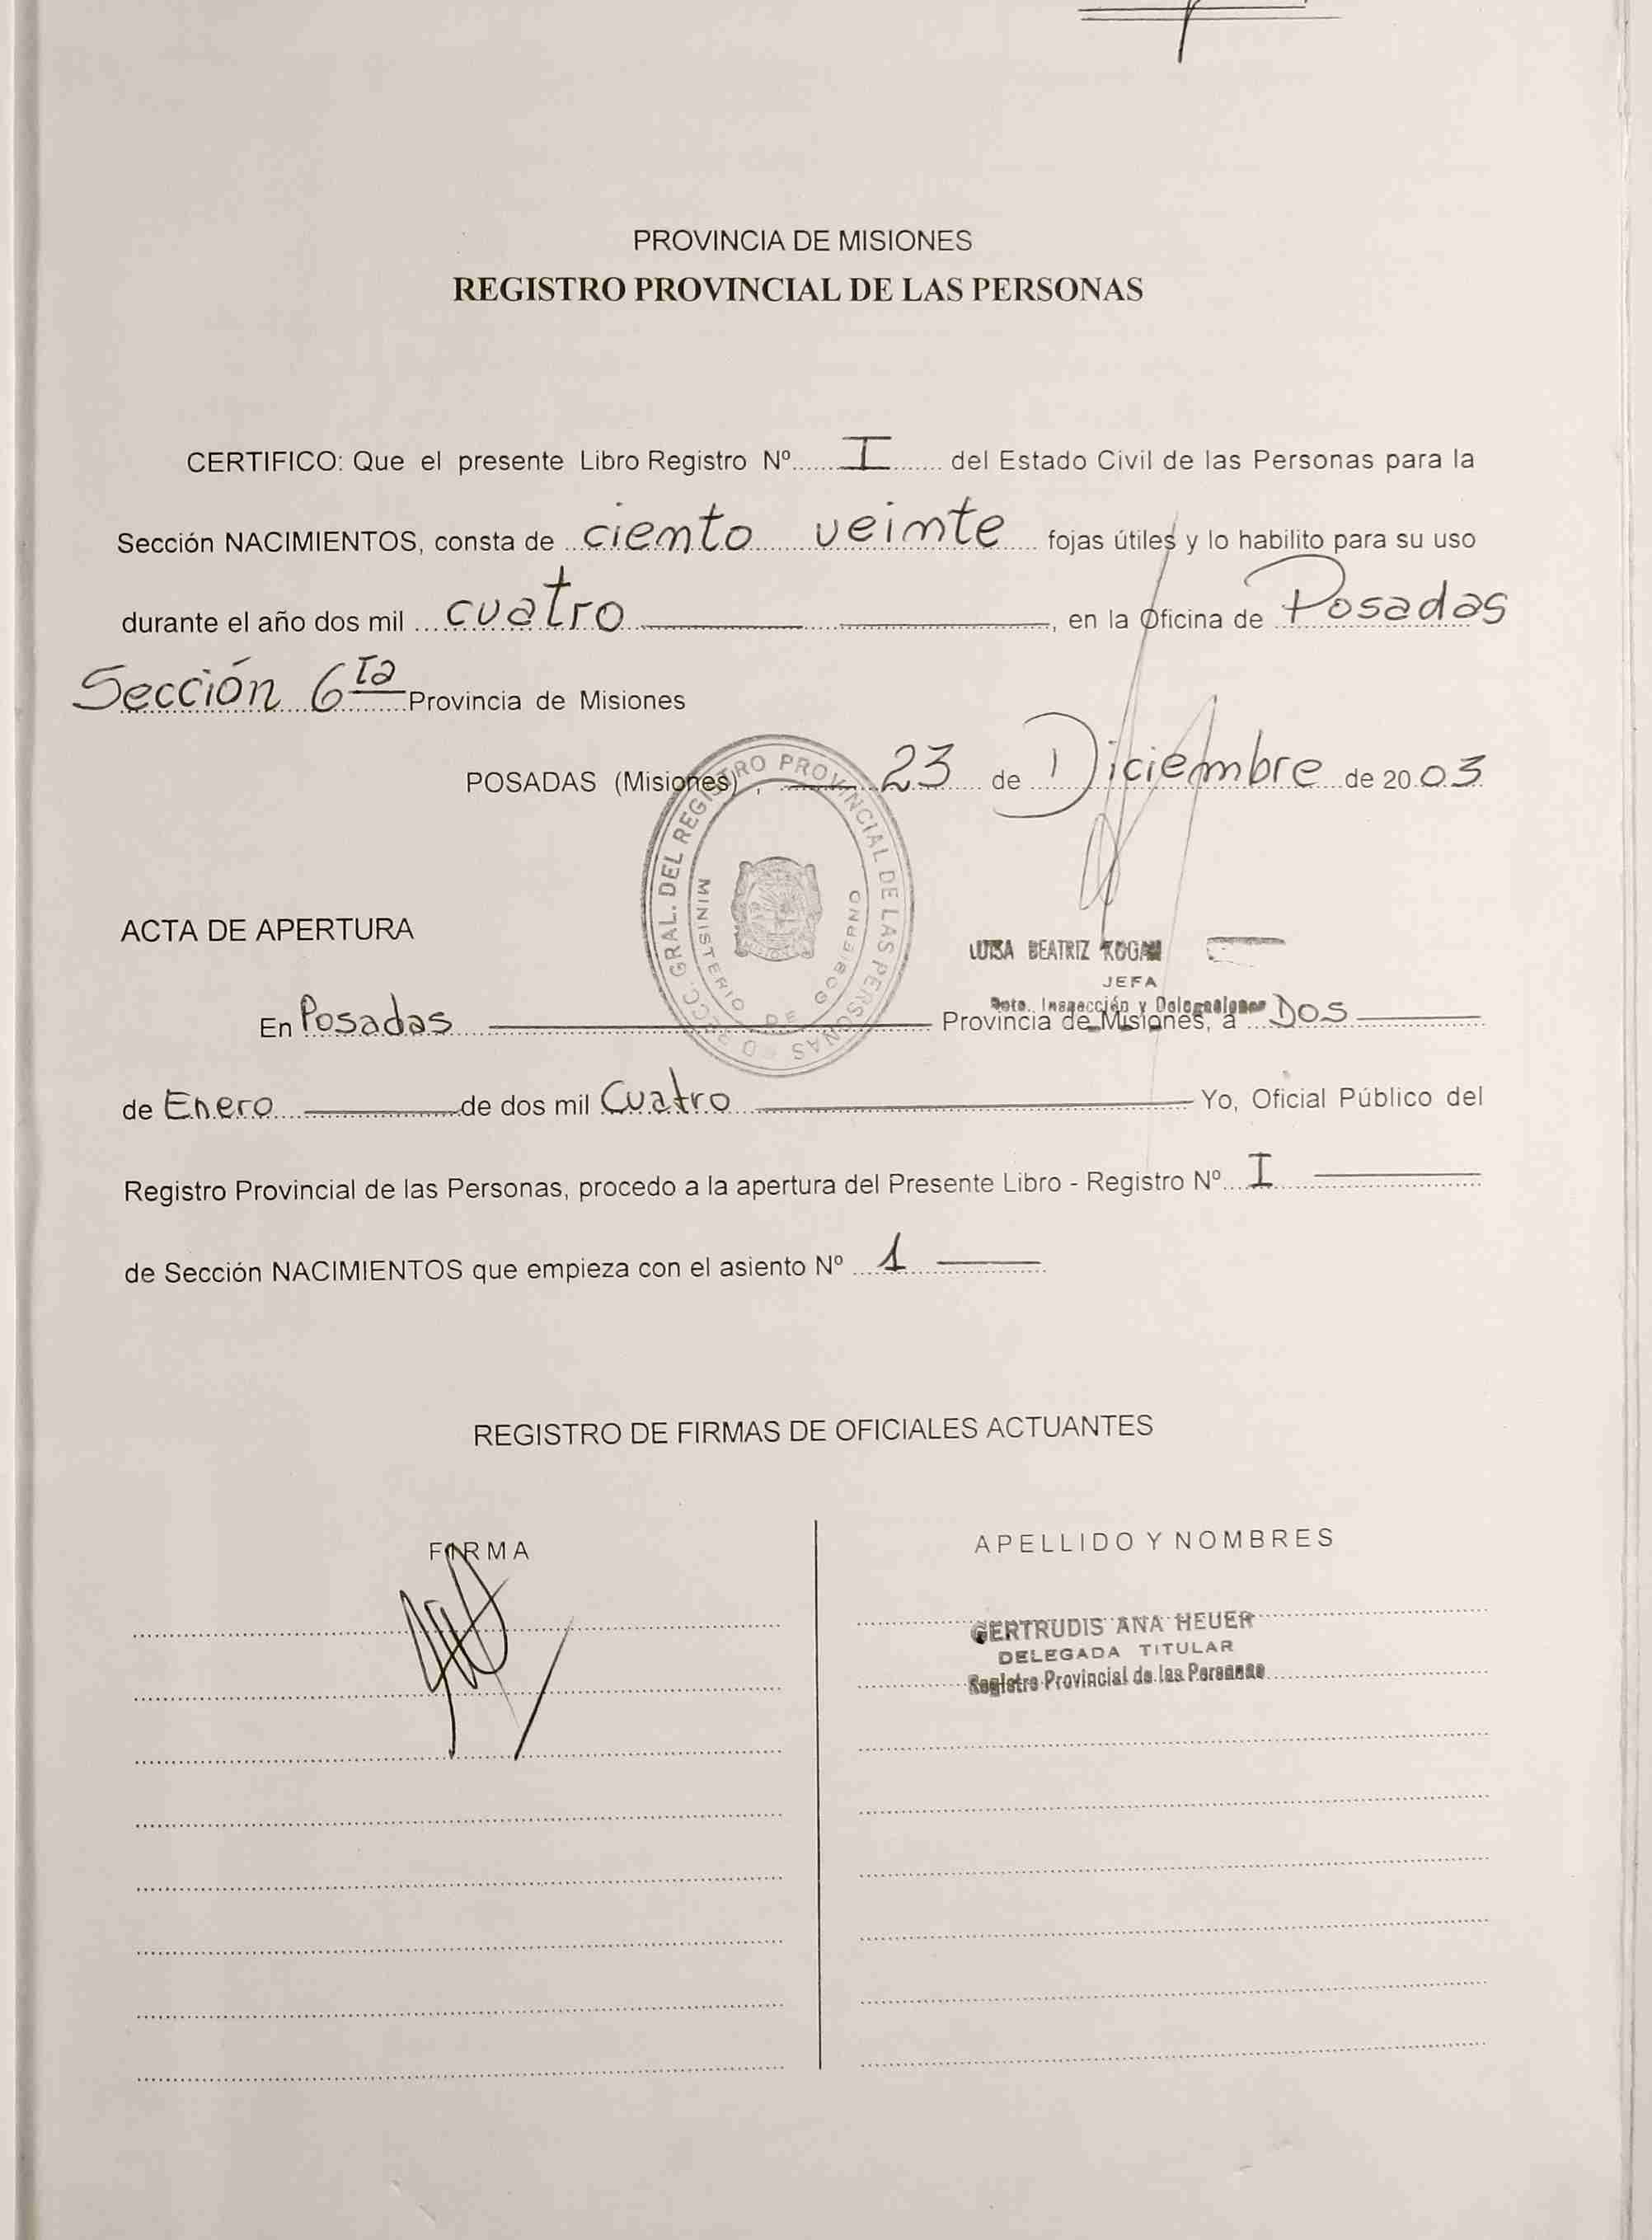 PROVINCIA DE MISIONES
REGISTRO PROVINCIAL DE LAS PERSONAS
CERTIFICO: Que el presente Libro Registro Nº I del Estado Civil de las Personas para la
Sección NACIMIENTOS, consta de ciento veinte fojas útiles y lo habilito para su uso
durante el año dos mil cuatro, en la Oficina de Posadas
Sección 6ta Provincia de Misiones
POSADAS (Misiones), 23 de Diciembre de 2003
DIRECC. GRAL. DEL REGISTRO PROVINCIAL DE LAS PERSONAS
MINISTERIO DE GOBIERNO
LUISA BEATRIZ KOGAN
JEFA
Dpto. Inspección y Delegaciones
ACTA DE APERTURA
En Posadas Provincia de Misiones, a Dos
de Enero de dos mil Cuatro Yo, Oficial Público del
Registro Provincial de las Personas, procedo a la apertura del Presente Libro - Registro Nº I
de Sección NACIMIENTOS que empieza con el asiento Nº 1
REGISTRO DE FIRMAS DE OFICIALES ACTUANTES
FIRMA
APELLIDO Y NOMBRES
GERTRUDIS ANA HEUER
DELEGADA TITULAR
Registro Provincial de las Personas